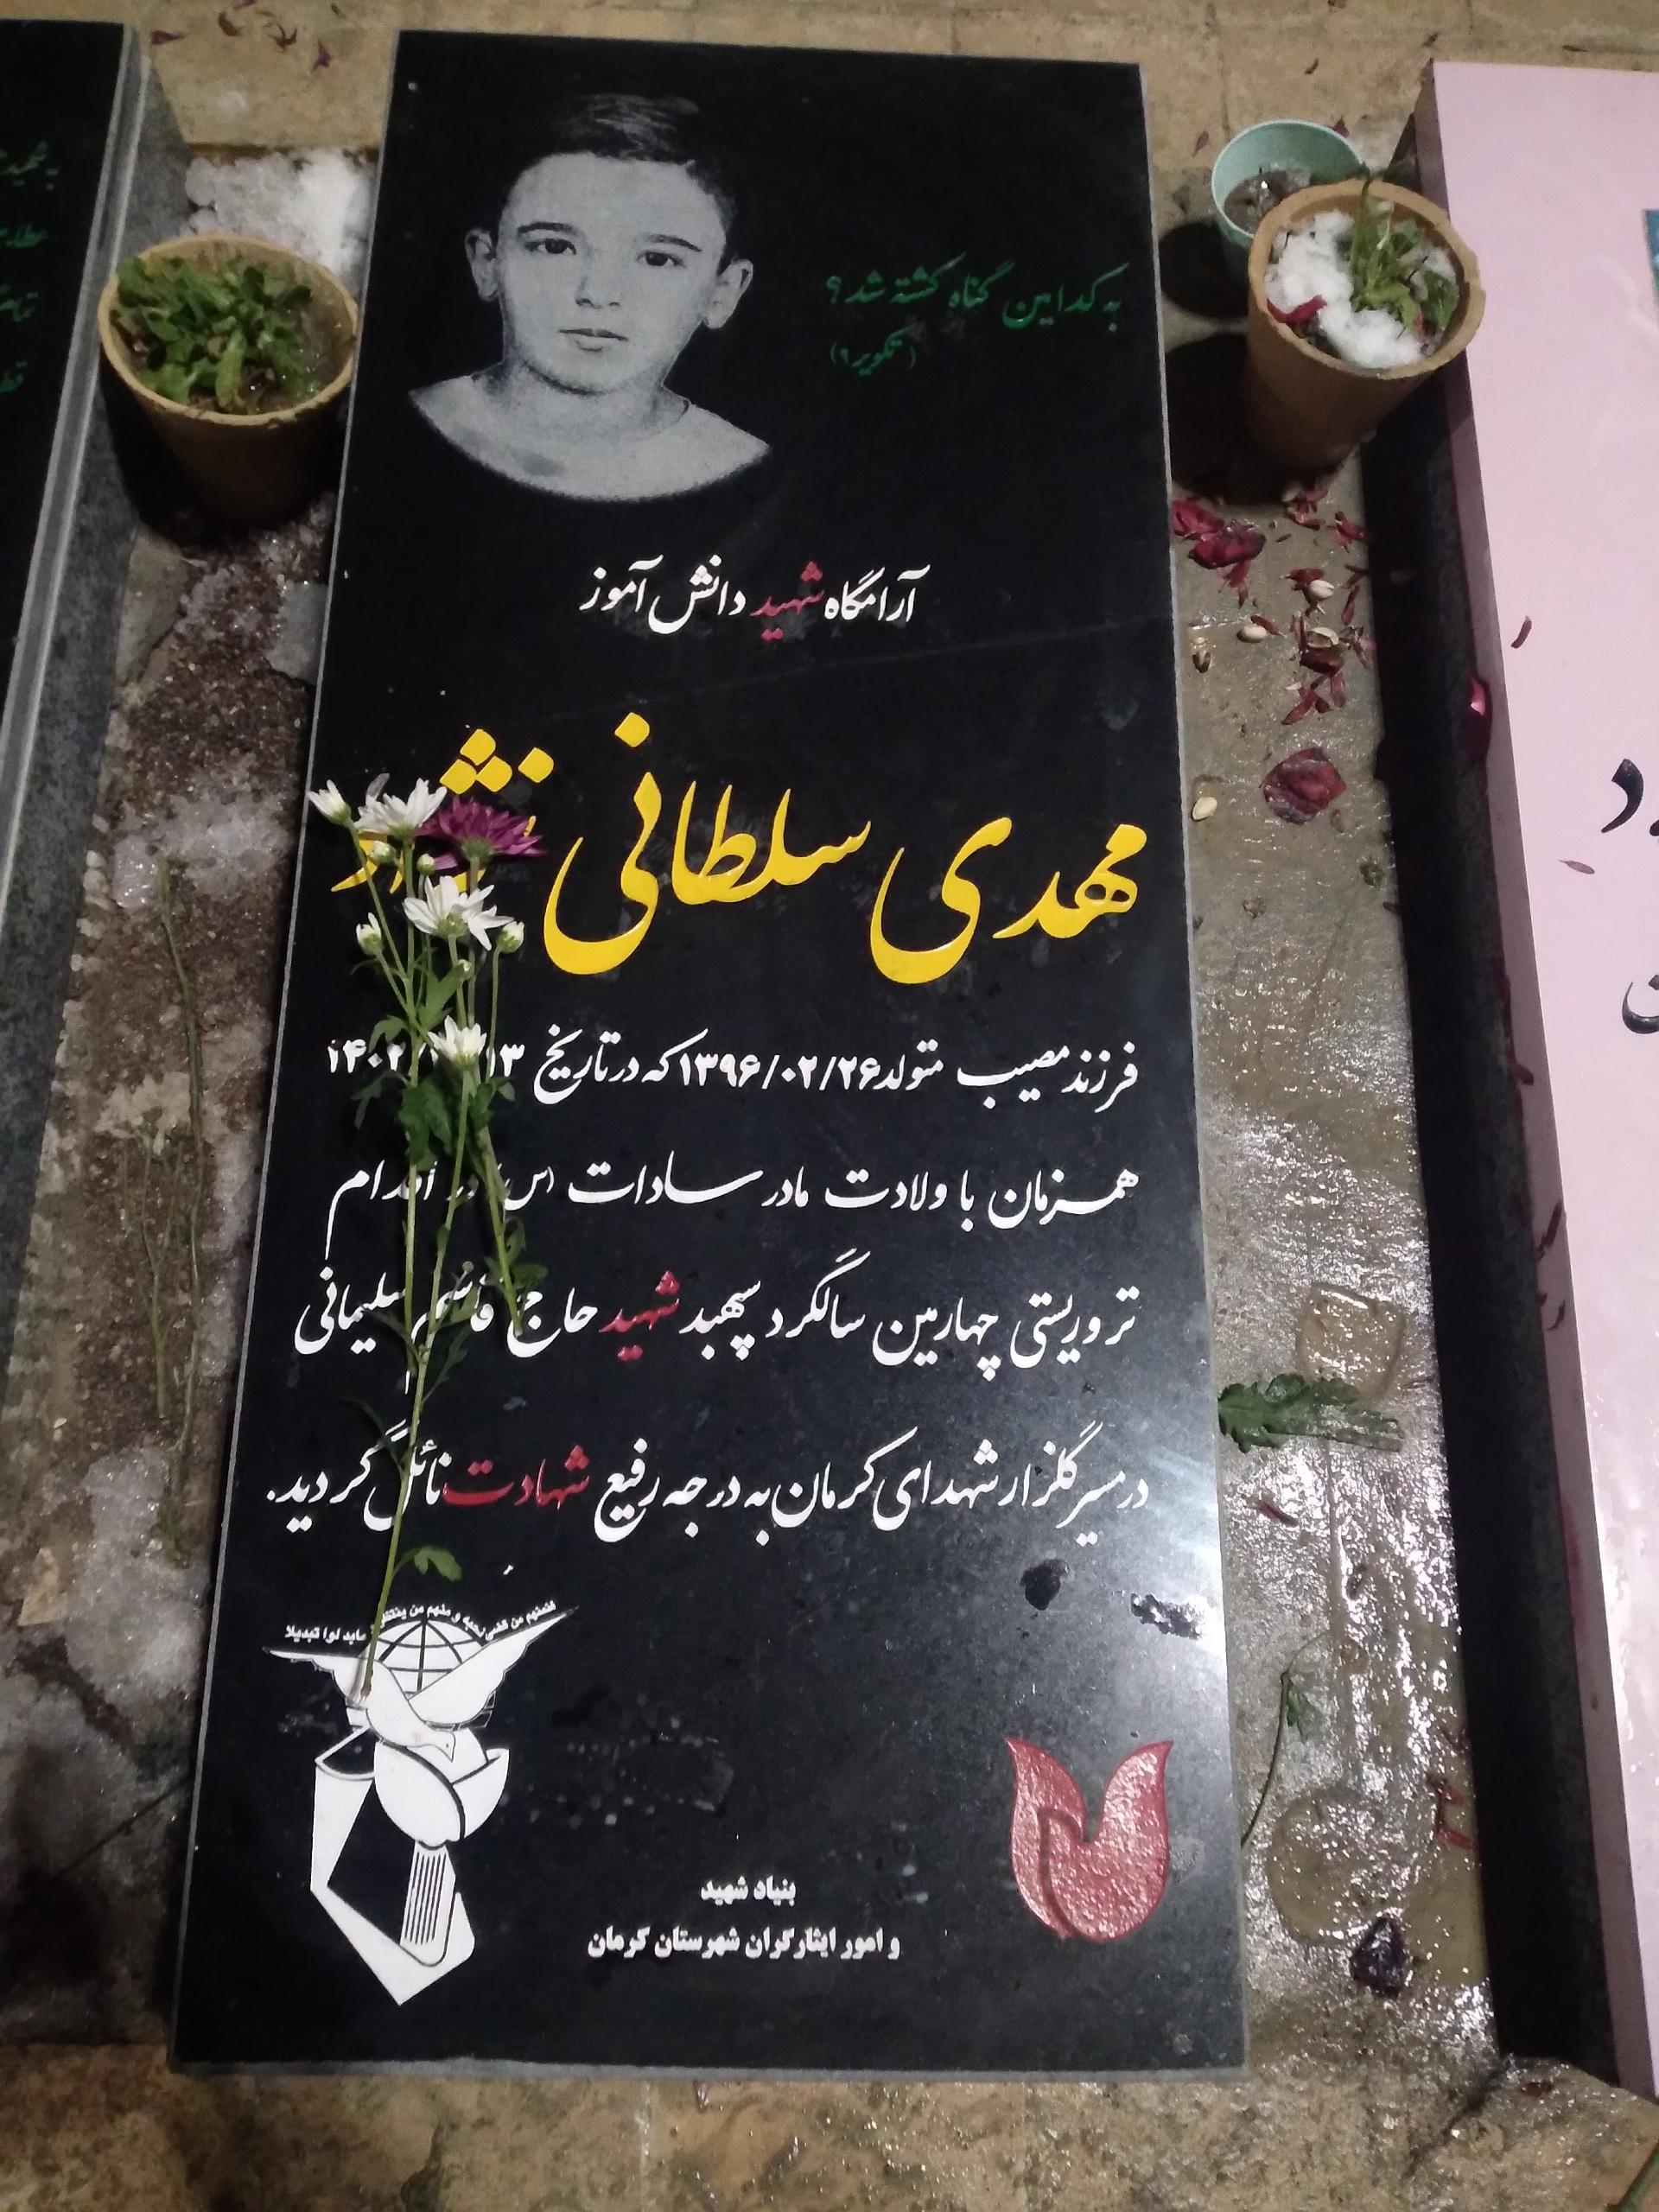 به کدامین گناه کشته شد؟
(تکویر ۹)
آرامگاه شهید دانش آموز
مهدی سلطانی
فرزند مصیب متولد ۱۳۹۶/۰۲/۲۶ که در تاریخ
همزمان با ولادت مادر سادات (س) در اقدام
تروریستی چهارمین سالگرد سپهبد شهید حاج قاسم سلیمانی
در مسیر گلزار شهدای کرمان به درجه رفیع شهادت نائل گردید.
فمنهم من قضی نحبه و منهم من ینتظر
مابدلوا تبدیلا
بنیاد شهید
و امور ایثارگران شهرستان کرمان